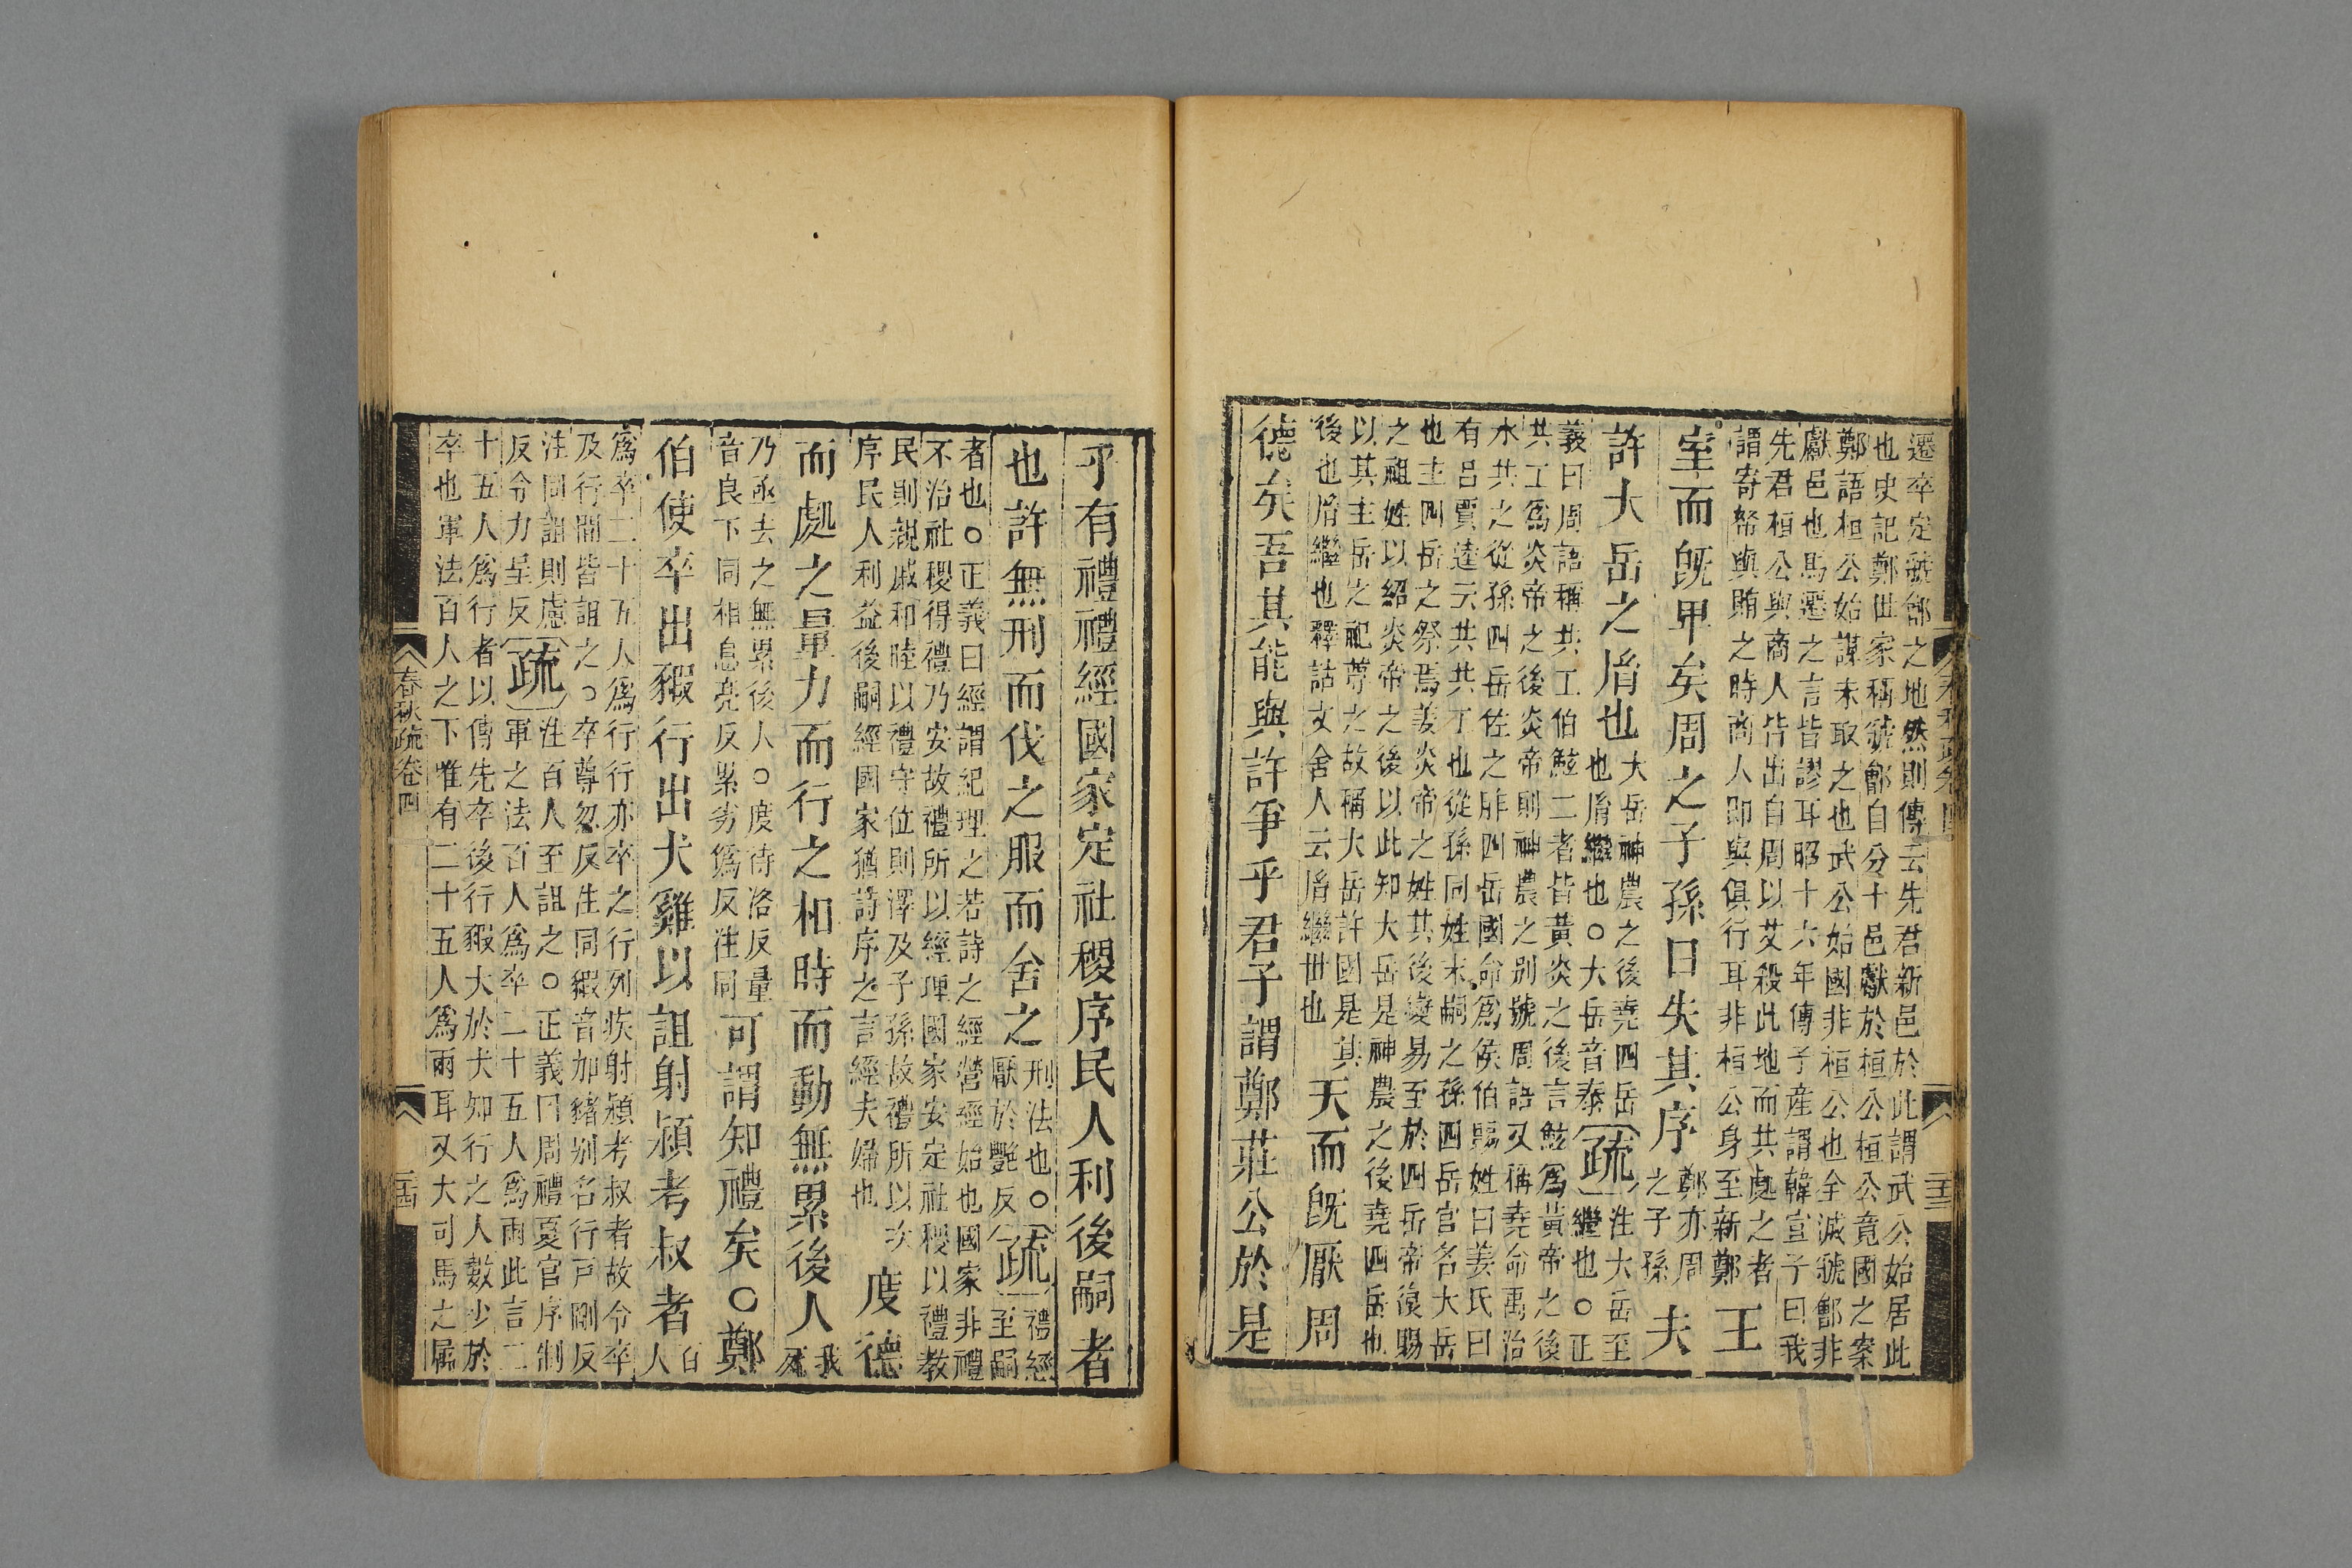 遷卒定虢鄶之地然則傳云先君新邑於此謂武公始居此
也史記鄭世家稱虢鄶自分十邑獻於桓公桓公竟國之案
鄭語桓公始謀未取之也武公始國非桓公也全滅虢鄶非
獻邑也馬遷之言皆謬耳昭十六年傳子産謂韓宣子曰我
先君桓公與商人皆出自周以艾殺此地而共處之者
謂寄帑與賄之時商人即與俱行耳非桓公身至新鄭
王
室而旣卑矣周之子孫日失其序
鄭亦周
之子孫
夫
許大岳之胤也
大岳神農之後堯四岳
也胤繼也○大岳音泰
疏
注大岳至
繼也○正
義曰周語稱共工伯鯀二者皆黃炎之後言鯀爲黃帝之後
共工爲炎帝之後炎帝則神農之别號周語又稱堯命禹治
水共之從孫四岳佐之胙四岳國命爲侯伯賜姓曰姜氏曰
有呂賈逵云共共工也從孫同姓末嗣之孫四岳官名大岳
也主四岳之祭焉姜炎帝之姓其後變易至於四岳帝復賜
之祖姓以紹炎帝之後以此知大岳是神農之後堯四岳也
以其主岳之祀尊之故稱大岳許國是其
後也胤繼也釋詁文舍人云胤繼世也
天而旣厭周
德矣吾其能與許爭乎君子謂鄭莊公於是
乎有禮禮經國家定社稷序民人利後嗣者
也許無刑而伐之服而舍之
刑法也○
厭於艷反
疏
禮經
至嗣
者也○正義曰經謂紀理之若詩之經營經始也國家非禮
不治社稷得禮乃安故禮所以經理國家安定社稷以禮教
民則親戚和睦以禮守位則澤及子孫故禮所以次
序民人利益後嗣經國家猶詩序之言經夫婦也
度德
而處之量力而行之相時而動無累後人
我
死
乃亟去之無累後人○度待洛反量
音良下同相息亮反累劣僞反注同
可謂知禮矣○鄭
伯使卒出豭行出犬雞以詛射潁考叔者
百
人
爲卒二十五人爲行行亦卒之行列疾射潁考叔者故令卒
及行間皆詛之○卒尊忽反注同豭音加豬别名行戸剛反
注同詛則慮
反令力呈反
疏
注百人至詛之○正義曰周禮夏官序制
軍之法百人爲卒二十五人爲兩此言二
十五人爲行者以傳先卒後行豭大於犬知行之人數少於
卒也軍法百人之下唯有二十五人爲兩耳又大司馬之屬
春秋疏卷四